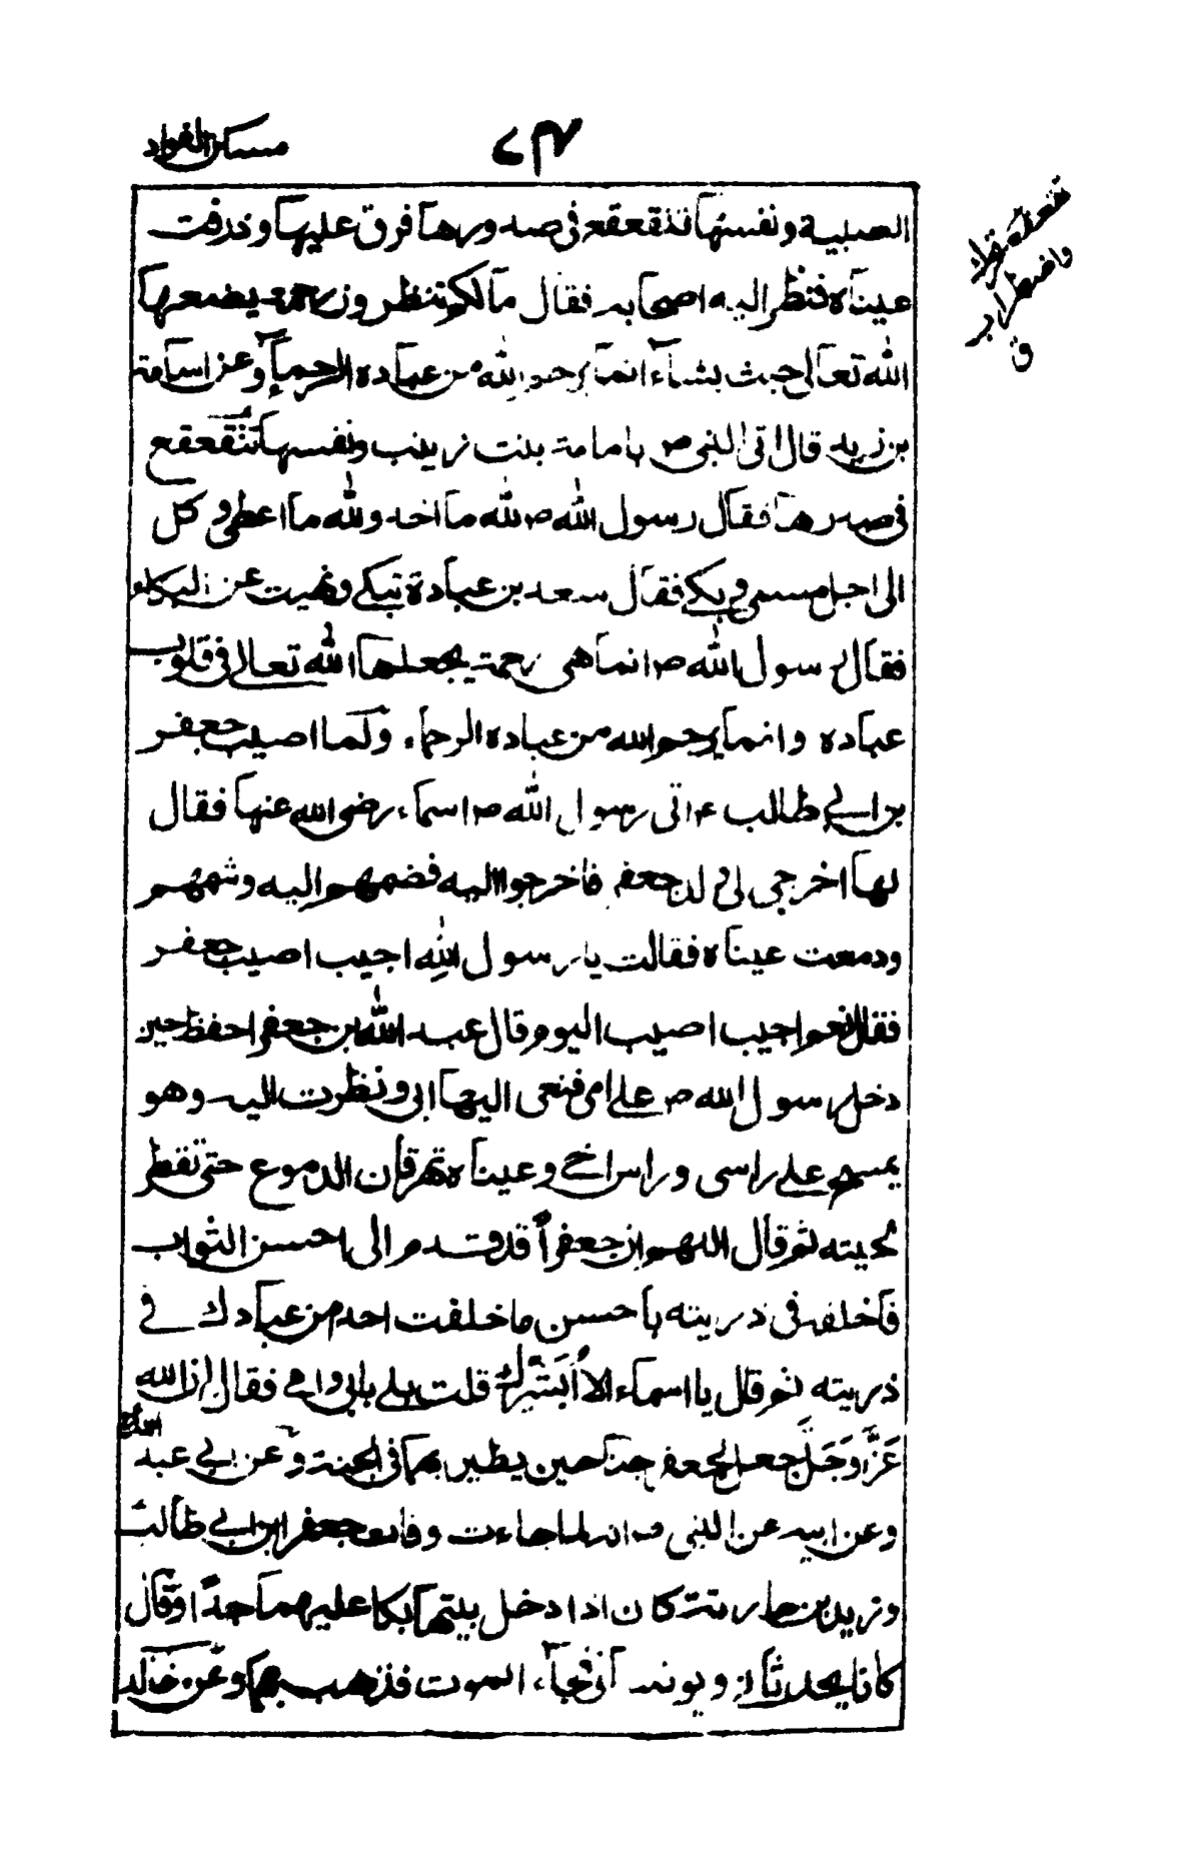 مسكن الفواد
٧٤
تقعقعه تحرك
واضطرابه
ق
الصبية ونفسها تتقعقع فى صدورها فرق عليها وذرفت
عيناه فنظر اليه اصحابه فقال مالكم تنظرون رحمة يضعها
الله تعالى حيث يشاء انما يرحم الله من عباده الرحماء وعن اسامة
بن زيد قال اتى النبى ص بامامة بنت زينب ونفسها تتقعقع
فى صدرها فقال رسول الله ص لله ما اخذ ولله ما اعطى وكل
الى اجل مسمى وبكى فقال سعد بن عبادة تبكى ونهيت عن البكاء
فقال رسول الله ص انما هى رحمة يجعلها الله تعالى فى قلوب
عباده وانما يرحم الله من عباده الرحماء ولما اصيب جعفر
بن ابى طالب ع اتى رسول الله ص اسماء رضى الله عنها فقال
لها اخرجى لى ولد جعفر فاخرجوا اليه فضمهم اليه وشمهم
ودمعت عيناه فقالت يا رسول الله اجيب اصيب جعفر
فقال نعم اجيب اصيب اليوم قال عبد الله بن جعفر احفظ حين
دخل رسول الله ص على امى فنعى اليها ابى ونظرت اليه وهو
يمسح على راسى وراس اخى وعيناه تهرقان الدموع حتى تقطر
لحيته ثم قال اللهم ان جعفراً قد قدم الى احسن الثواب
فاخلفه فى ذريته باحسن ما خلفت احد من عبادك فى
ذريته ثم قال يا اسماء الا اُبَشّرك قلت بلى بابى وامى فقال ان الله
عَزَّ وَجَلَّ جعل لجعفر جناحين يطير بهما فى الجنة وعن ابى عبد الله ع
وعن ابيه عن النبى ص انه لما جاءت وفات جعفر ابن ابى طالب
وزيد بن حارثة كان اذا دخل بيتها بكا عليهما جداً وقال
كانا يحدثانى ويونسانى فجاء الموت فذهب بهما وعن خالد